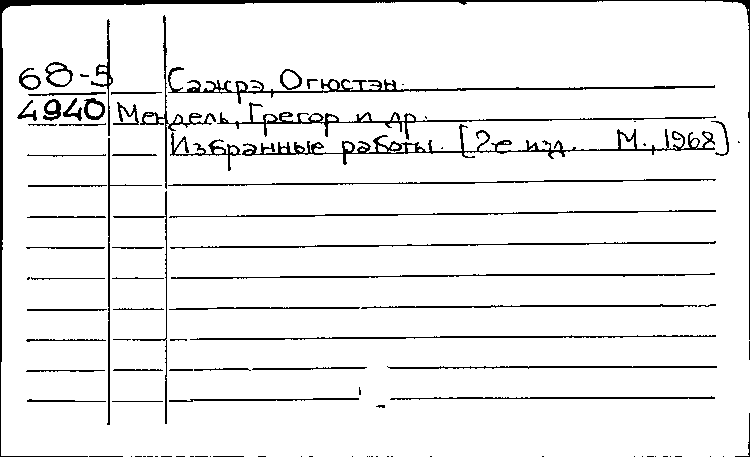 68-5 Сажрэ, Огюстэн.
4940 Мендель, Грегор и др.
Избранные работы. [2е изд. М., 1968].